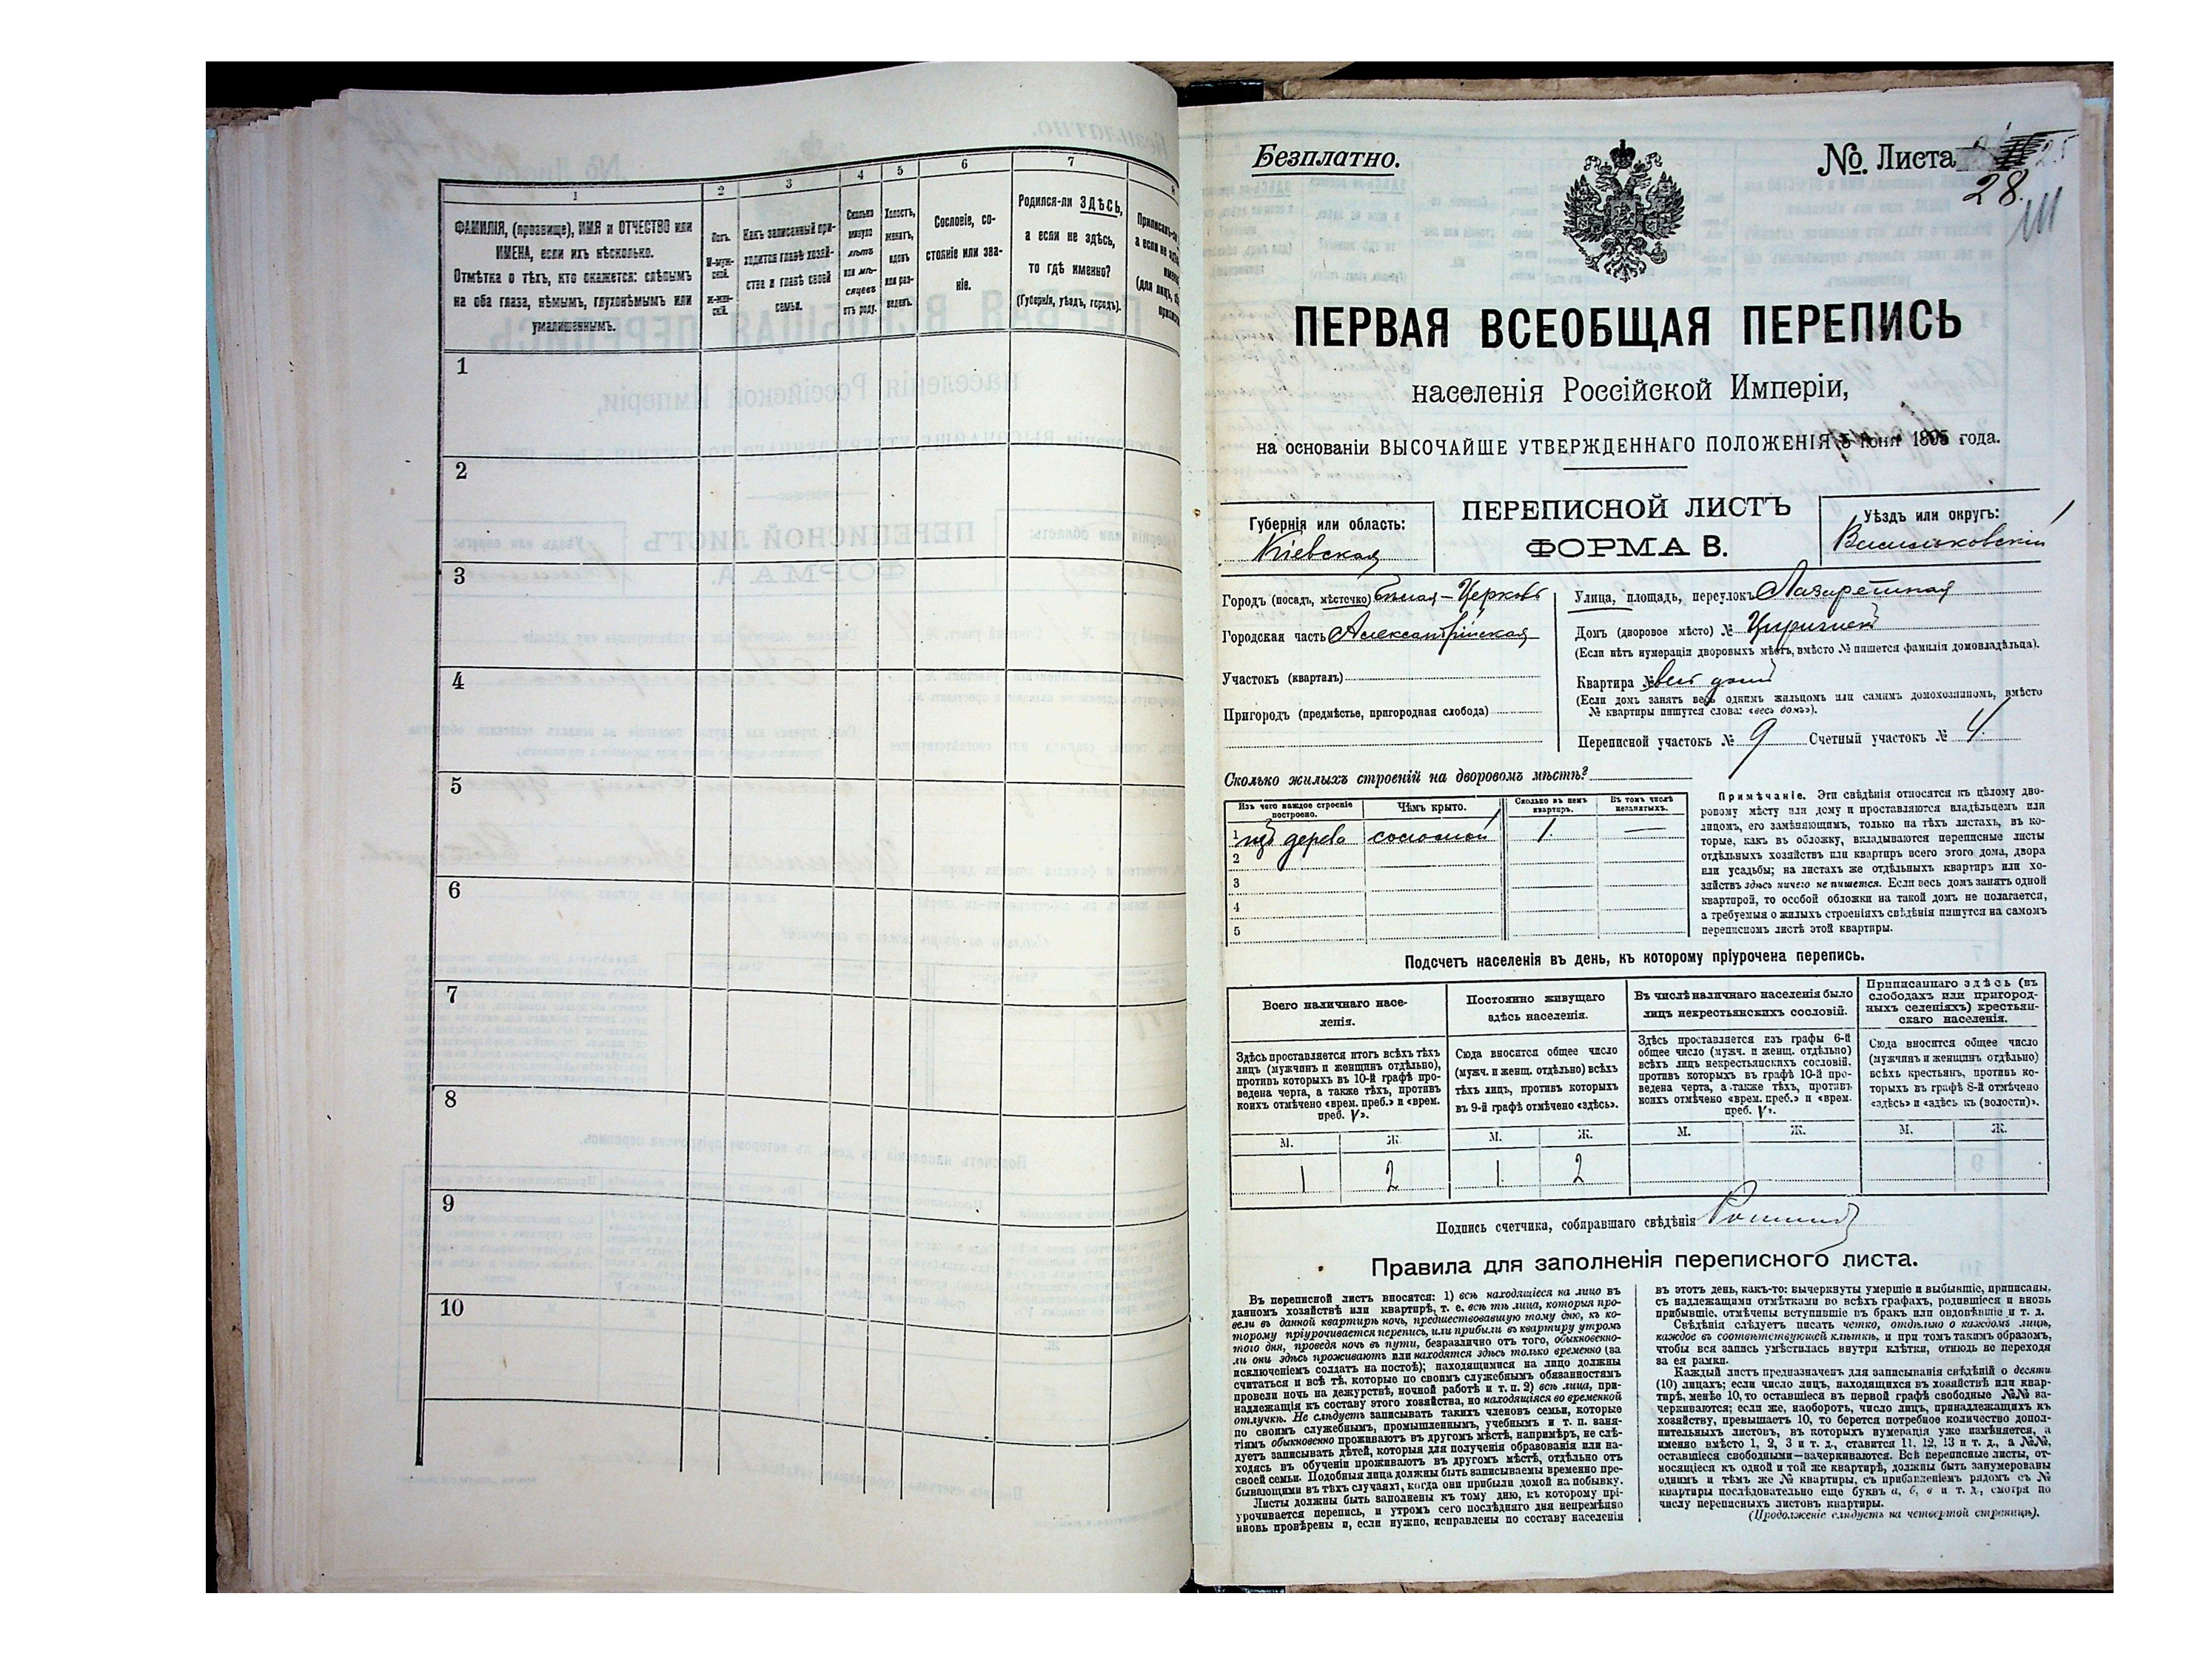 1
2
3
4
5
6
7
8
ФАМИЛІЯ, (прозвище), ИМЯ и ОТЧЕСТВО или
ИМЕНА, если ихъ нѣсколько.
Отмѣтка о тѣхъ, кто окажется: слѣпымъ
на оба глаза, нѣмымъ, глухонѣмымъ или
умалишеннымъ.
Полъ.
М-муж-
ской.
Ж-жен-
скій.
Какъ записанный при-
ходится главѣ хозяй-
ства и главѣ своей
семьи.
Сколько
минуло
лѣтъ
или мѣ-
сяцевъ
отъ роду.
Холостъ,
женатъ,
вдовъ
или раз-
веденъ.
Сословіе, со-
стояніе или зва-
ніе.
Родился-ли ЗДѢСЬ,
а если не здѣсь,
то гдѣ именно?
(Губернія, уѣздъ, городъ).
1
2
3
4
5
6
7
8
9
10
Безплатно.
№ Листа
28.
ПЕРВАЯ ВСЕОБЩАЯ ПЕРЕПИСЬ
населенія Россійской Имперіи,
на основаніи ВЫСОЧАЙШЕ УТВЕРЖДЕННАГО ПОЛОЖЕНІЯ 5 Іюня 1895 года.
Губернія или область:
Кіевская
ПЕРЕПИСНОЙ ЛИСТЪ
ФОРМА В.
Уѣздъ или округъ:
Васильковскій
Городъ (посадъ, мѣстечко) Бѣлая-Церковь
Городская часть Александрійская
Участокъ (кварталъ)
Пригородъ (предмѣстье, пригородная слобода)
Улица, площадь, переулокъ Лазаретная
Домъ (дворовое мѣсто) №
(Если нѣтъ нумераціи дворовыхъ мѣстъ, вмѣсто № пишется фамилія домовладѣльца).
Квартира № весь домъ
(Если домъ занятъ весь однимъ жильцомъ или самимъ домохозяиномъ, вмѣсто
№ квартиры пишутся слова: «весь домъ»).
Переписной участокъ № 9 Счетный участокъ № 4.
Сколько жилыхъ строеній на дворовомъ мѣстѣ?
Изъ чего каждое строеніе
построено.
Чѣмъ крыто.
Сколько въ немъ
квартиръ.
Въ томъ числѣ
незанятыхъ.
1 изъ дерева соломой 1. —
2
3
4
5
Примѣчаніе. Эти свѣдѣнія относятся къ цѣлому дво-
ровому мѣсту или дому и проставляются владѣльцемъ или
лицомъ, его замѣняющимъ, только на тѣхъ листахъ, въ ко-
торые, какъ въ обложку, вкладываются переписные листы
отдѣльныхъ хозяйствъ или квартиръ всего этого дома, двора
или усадьбы; на листахъ же отдѣльныхъ квартиръ или хо-
зяйствъ здѣсь ничего не пишется. Если весь домъ занятъ одной
квартирой, то особой обложки на такой домъ не полагается,
а требуемыя о жилыхъ строеніяхъ свѣдѣнія пишутся на самомъ
переписномъ листѣ этой квартиры.
Подсчетъ населенія въ день, къ которому пріурочена перепись.
Всего наличнаго насе-
ленія.
Постоянно живущаго
здѣсь населенія.
Въ числѣ наличнаго населенія было
лицъ некрестьянскихъ сословій.
Приписаннаго здѣсь (въ
слободахъ или пригород-
ныхъ селеніяхъ) крестьян-
скаго населенія.
Здѣсь проставляется итогъ всѣхъ тѣхъ
лицъ (мужчинъ и женщинъ отдѣльно),
противъ которыхъ въ 10-й графѣ про-
ведена черта, а также тѣхъ, противъ
коихъ отмѣчено «врем. преб.» и «врем.
преб. V».
Сюда вносится общее число
(мужч. и женщ. отдѣльно) всѣхъ
тѣхъ лицъ, противъ которыхъ
въ 9-й графѣ отмѣчено «здѣсь».
Здѣсь проставляется изъ графы 6-й
общее число (мужч. и женщ. отдѣльно)
всѣхъ лицъ некрестьянскихъ сословій,
противъ которыхъ въ графѣ 10-й про-
ведена черта, а также тѣхъ, противъ
коихъ отмѣчено «врем. преб.» и «врем.
преб. V».
Сюда вносится общее число
(мужчинъ и женщинъ отдѣльно)
всѣхъ крестьянъ, противъ ко-
торыхъ въ графѣ 8-й отмѣчено
«здѣсь» и «здѣсь къ (волости)».
М. Ж. М. Ж. М. Ж. М. Ж.
1 2 1 2
Подпись счетчика, собиравшаго свѣдѣнія
Правила для заполненія переписного листа.
Въ переписной листъ вносятся: 1) всѣ находящіеся на лицо въ
данномъ хозяйствѣ или квартирѣ, т. е. всѣ тѣ лица, которыя про-
вели въ данной квартирѣ ночь, предшествовавшую тому дню, къ ко-
торому пріурочивается перепись, или прибыли въ квартиру утромъ
того дня, проведя ночь въ пути, безразлично отъ того, обыкновенно-
ли они здѣсь проживаютъ или находятся здѣсь только временно (за
исключеніемъ солдатъ на постоѣ); находящимися на лицо должны
считаться и всѣ тѣ, которые по своимъ служебнымъ обязанностямъ
провели ночь на дежурствѣ, ночной работѣ и т. п. 2) всѣ лица, при-
надлежащія къ составу этого хозяйства, но находящіяся во временной
отлучкѣ. Не слѣдуетъ записывать такихъ членовъ семьи, которые
по своимъ служебнымъ, промышленнымъ, учебнымъ и т. п. заня-
тіямъ обыкновенно проживаютъ въ другомъ мѣстѣ, напримѣръ, не слѣ-
дуетъ записывать дѣтей, которыя для полученія образованія или на-
ходясь въ обученіи проживаютъ въ другомъ мѣстѣ, отдѣльно отъ
своей семьи. Подобныя лица должны быть записываемы временно пре-
бывающими въ тѣхъ случаяхъ, когда они прибыли домой на побывку.
Листы должны быть заполнены къ тому дню, къ которому прі-
урочивается перепись, и утромъ сего послѣдняго дня непремѣнно
вновь провѣрены и, если нужно, исправлены по составу населенія
въ этотъ день, какъ-то: вычеркнуты умершіе и выбывшіе, приписаны,
съ надлежащими отмѣтками во всѣхъ графахъ, родившіеся и вновь
прибывшіе, отмѣчены вступившіе въ бракъ или овдовѣвшіе и т. д.
Свѣдѣнія слѣдуетъ писать четко, отдѣльно о каждомъ лицѣ,
каждое въ соотвѣтствующей клѣткѣ, и при томъ такимъ образомъ,
чтобы вся запись умѣстилась внутри клѣтки, отнюдь не переходя
за ея рамки.
Каждый листъ предназначенъ для записыванія свѣдѣній о десяти
(10) лицахъ; если число лицъ, находящихся въ хозяйствѣ или квар-
тирѣ, менѣе 10, то оставшіеся въ первой графѣ свободные №№ за-
черкиваются; если же, наоборотъ, число лицъ, принадлежащихъ къ
хозяйству, превышаетъ 10, то берется потребное количество допол-
нительныхъ листовъ, въ которыхъ нумерація уже измѣняется, а
именно вмѣсто 1, 2, 3 и т. д., ставится 11, 12, 13 и т. д., а №№,
оставшіеся свободными—зачеркиваются. Всѣ переписные листы, от-
носящіеся къ одной и той же квартирѣ, должны быть занумерованы
однимъ и тѣмъ же № квартиры, съ прибавленіемъ рядомъ съ №
квартиры послѣдовательно еще буквъ а, б, в и т. д., смотря по
числу переписныхъ листовъ квартиры.
(Продолженіе слѣдуетъ на четвертой страницѣ).